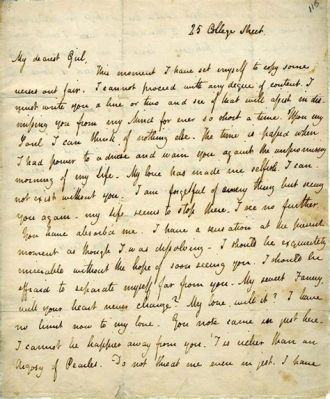 115
25 College Street.
My dearest Girl,
This moment I have set myself to copy some
verses out fair. I cannot proceed with any degree of content. I
must write you a line or two and see if that will assist in dis
missing you from my Mind for ever so short a time. Upon my
Soul I can think of nothing else. The time is passed when
I had power to advise and warn you against the unpromising
morning of my Life. My love has made me selfish. I can
not exist without you. I am forgetful of every thing but seeing
you again - my Life seems to stop there. I see no further.
You have absorb'd me. I have a sensation at the present
moment as though I was dissolving. I should be exquisitely
miserable without the hope of soon seeing you. I should be
affraid to separate myself far from you. My sweet Fanny,
will your heart never change? My love, will it? I have
no limit now to my love. You note came in just here.
I cannot be happier away from you. 'T is richer than an
Argosy of Pearles. Do not threat me even in jest. I have